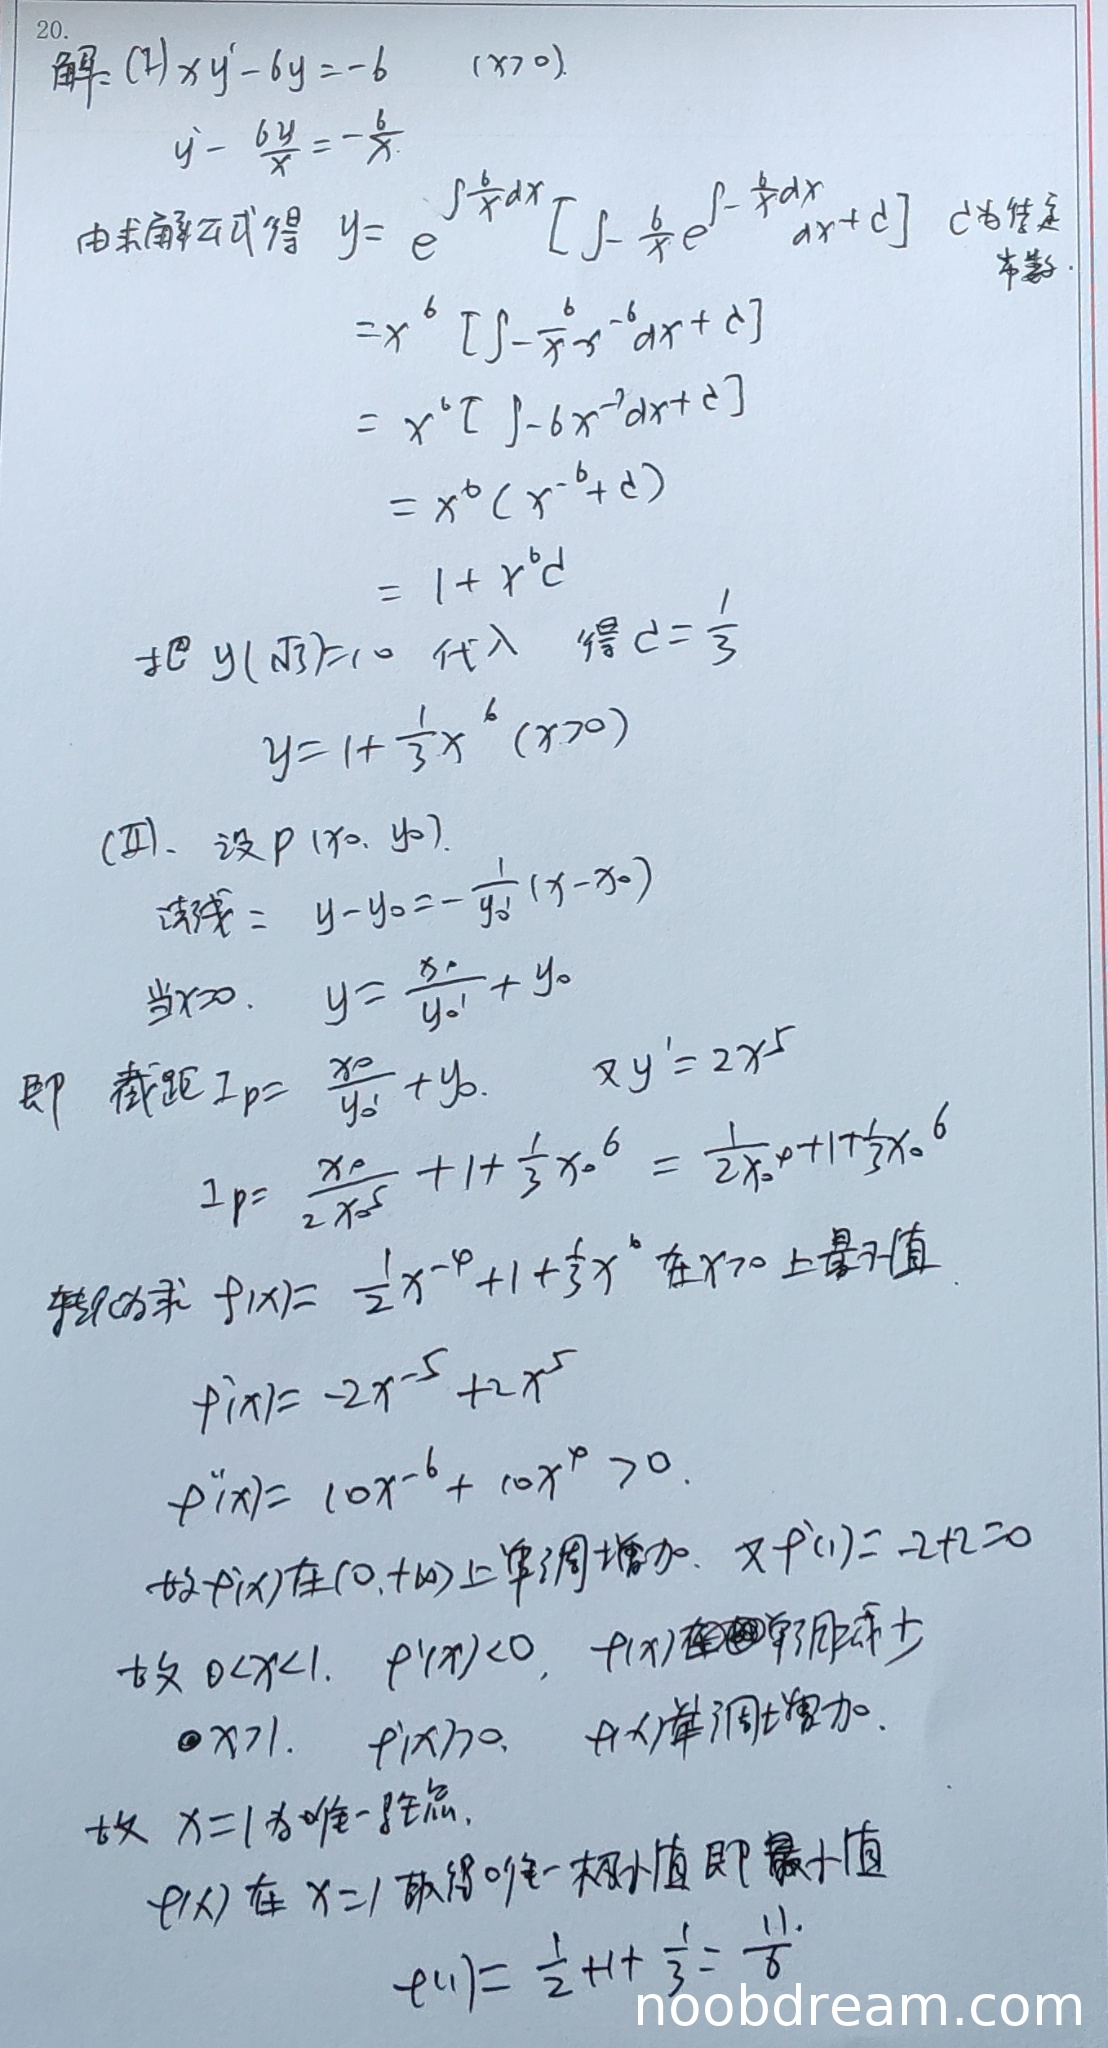 20.
解: (I) xy' - 6y = -6 (x>0).
y' - 6y/x = -6/x.
由求解公式得 y = e^{∫6/x dx} [∫ -6/x e^{∫-6/x dx} dx + C] C为待定常数.
= x^6 [∫ -6/x x^{-6} dx + C]
= x^6 [∫ -6x^{-7} dx + C]
= x^6 (x^{-6} + C)
= 1 + x^6 C
把 y(√3)=10 代入 得 C = 1/3
y = 1 + 1/3 x^6 (x>0)
(II). 设 P (x0, y0).
法线: y - y0 = - 1/y0' (x - x0)
当x=0. y = x0/y0' + y0
即 截距 Ip = x0/y0' + y0. 又 y' = 2x^5
Ip = x0/2x0^5 + 1 + 1/3 x0^6 = 1/2x0^4 + 1 + 1/3 x0^6
转化为求 f(x) = 1/2 x^{-4} + 1 + 1/3 x^6 在 x>0 上最小值.
f'(x) = -2x^{-5} + 2x^5
f''(x) = 10x^{-6} + 10x^4 > 0.
故f'(x)在(0,+∞)上单调增加. 又 f'(1) = -2+2=0
故 0<x<1. f'(x)<0, f(x) 单调减少
x>1. f'(x)>0, f(x)单调增加.
故 x=1 为唯一驻点.
f(x) 在 x=1 取得唯一极小值 即 最小值
f(1) = 1/2 + 1 + 1/3 = 11/6.
noobdream.com